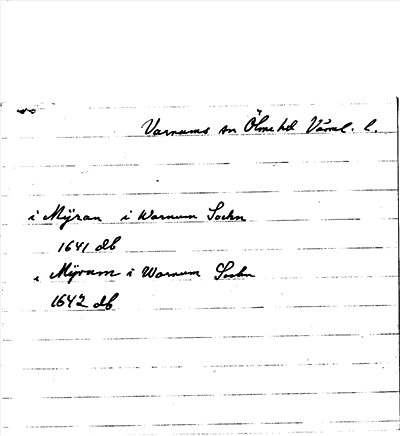 Varnums sn Ölme hd Värml. l.
i Mÿran i Warnum Sochn
1641 db
i Mÿrum i Warnum Sochn
1642 db